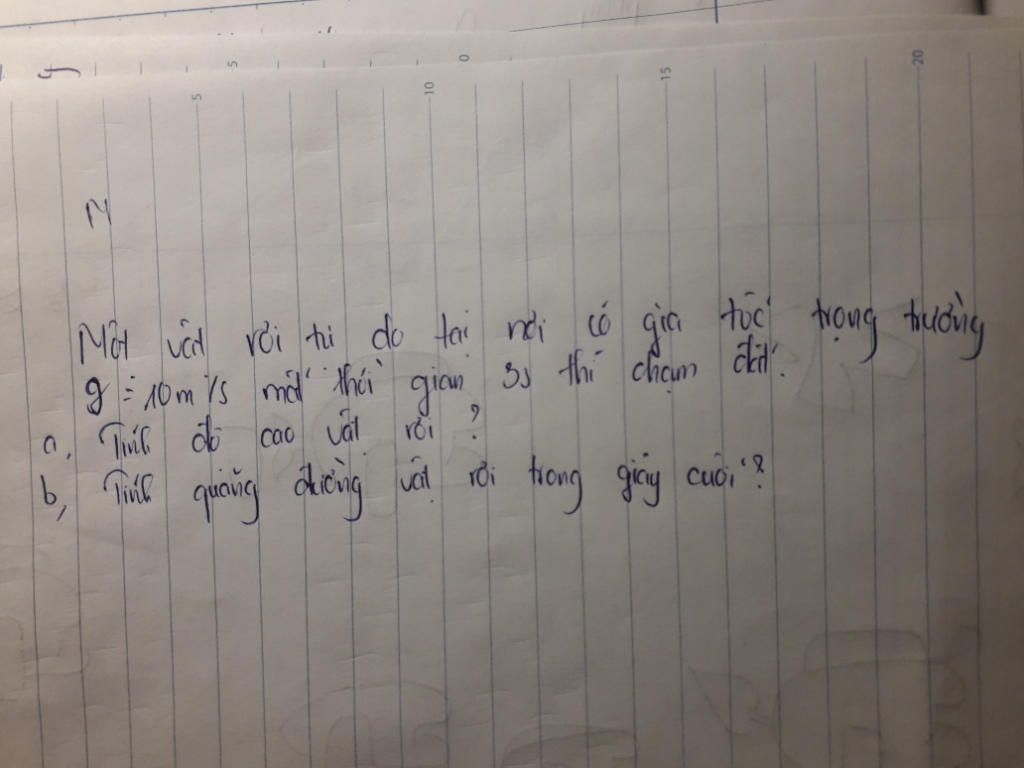 5
5
10
0
15
20
Một vật rơi tự do tại nơi có gia tốc trọng trường
g = 10m/s mất thời gian 3s thì chạm đất.
a, Tính độ cao vật rơi?
b, Tính quãng đường vật rơi trong giây cuối?